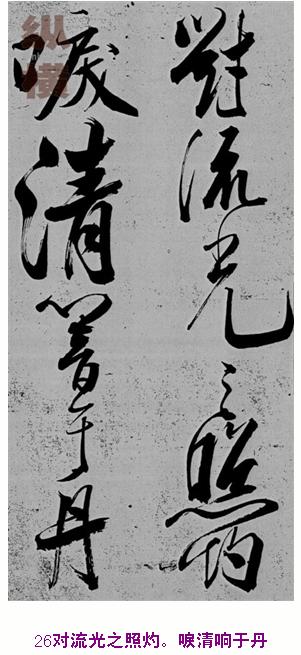 纵横
對流光之照灼
唳清響于丹
26对流光之照灼。唳清响于丹